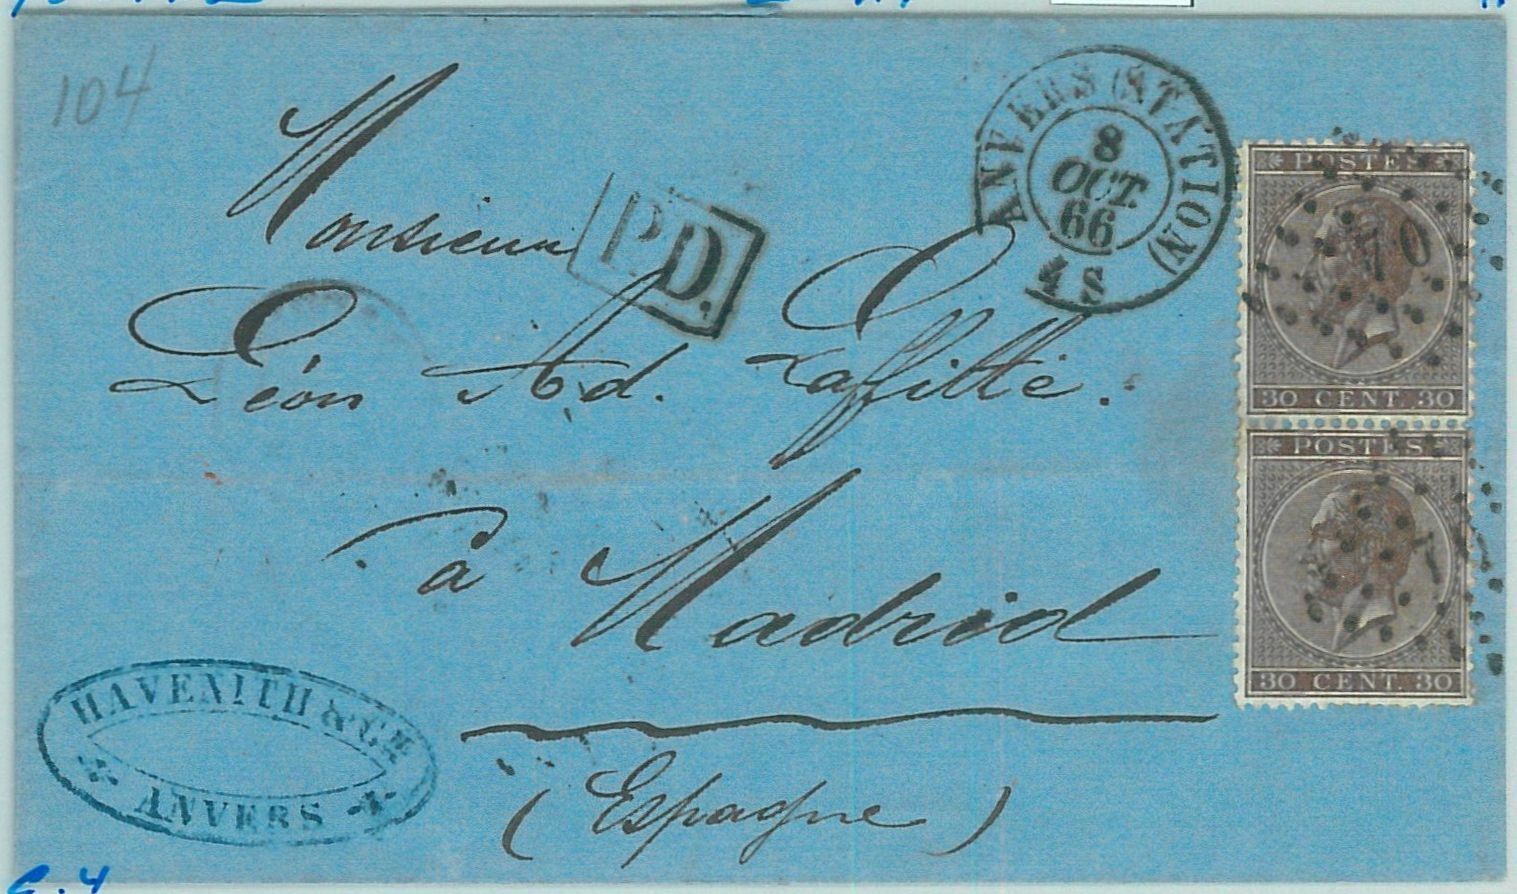 104
ANVERS (STATION)
8
OCT.
66
4 S
P.D.
POSTES
10
30 CENT. 30
POSTES
30 CENT. 30
Monsieur
Léon Ad. Laffitte.
à Madrid
(Espagne)
HAVENITH & Cie
ANVERS